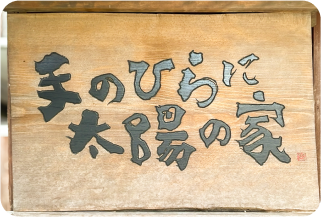 手のひらに
太陽の家